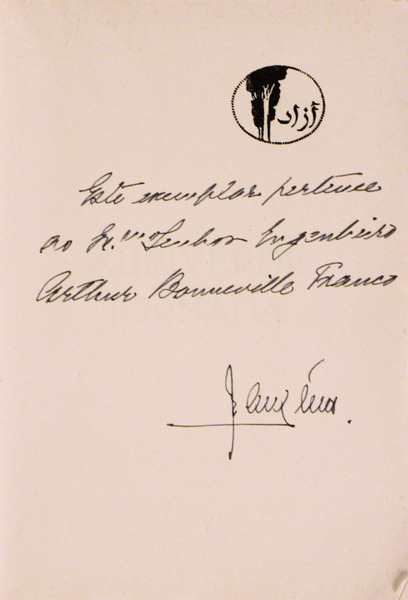 آزاد
Este exemplar pertence
ao Ex.mo Senhor Engenheiro
Arthur Bonneville Franco